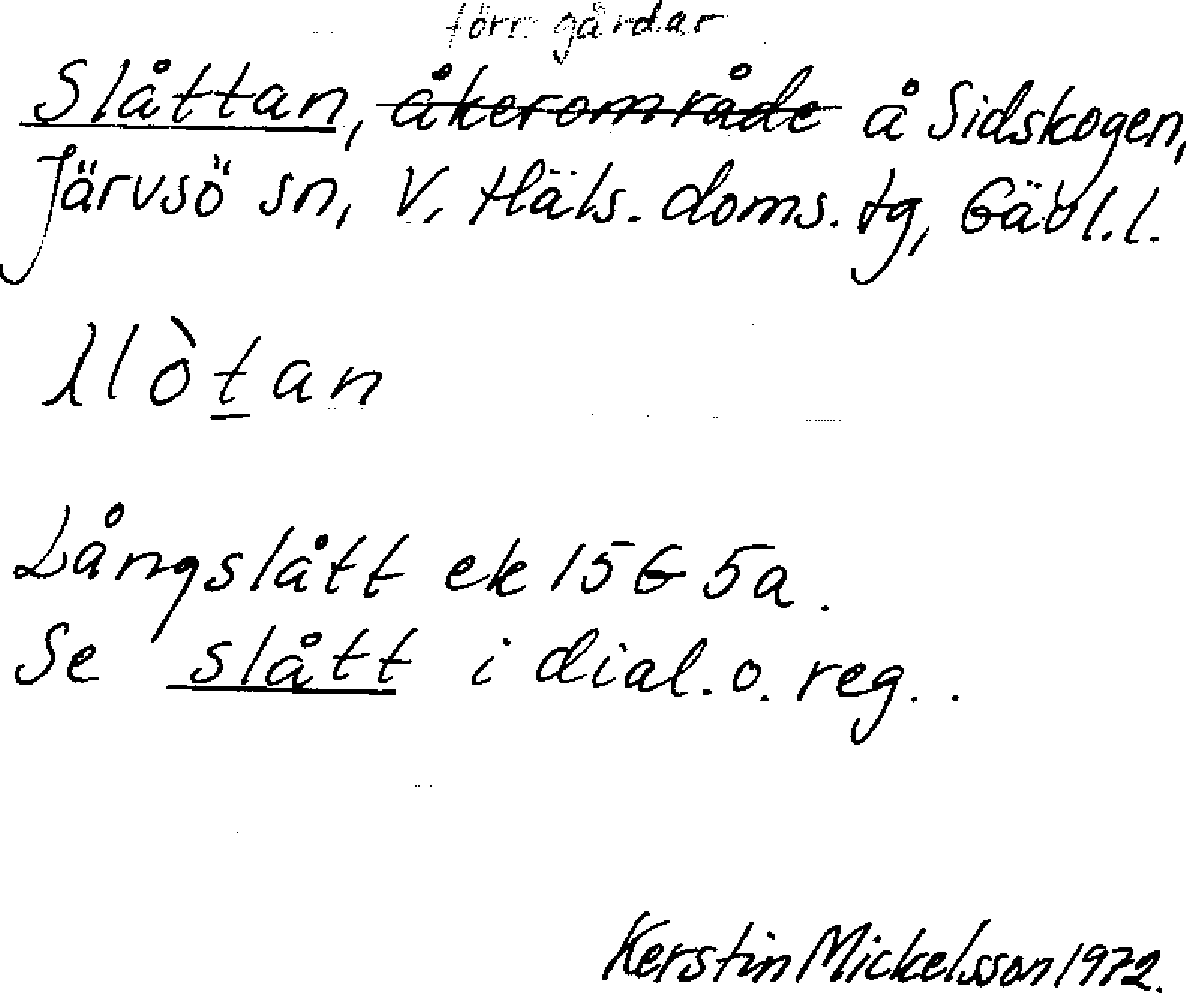 förr gårdar
Slåttan, åkerområde å Sidskogen,
Järvsö sn, V. Häls. doms. tg, Gävl. l.
λlòtan
Långslått ek 15G 5a.
Se slått i dial. o. reg..
Kerstin Mickelsson 1972.